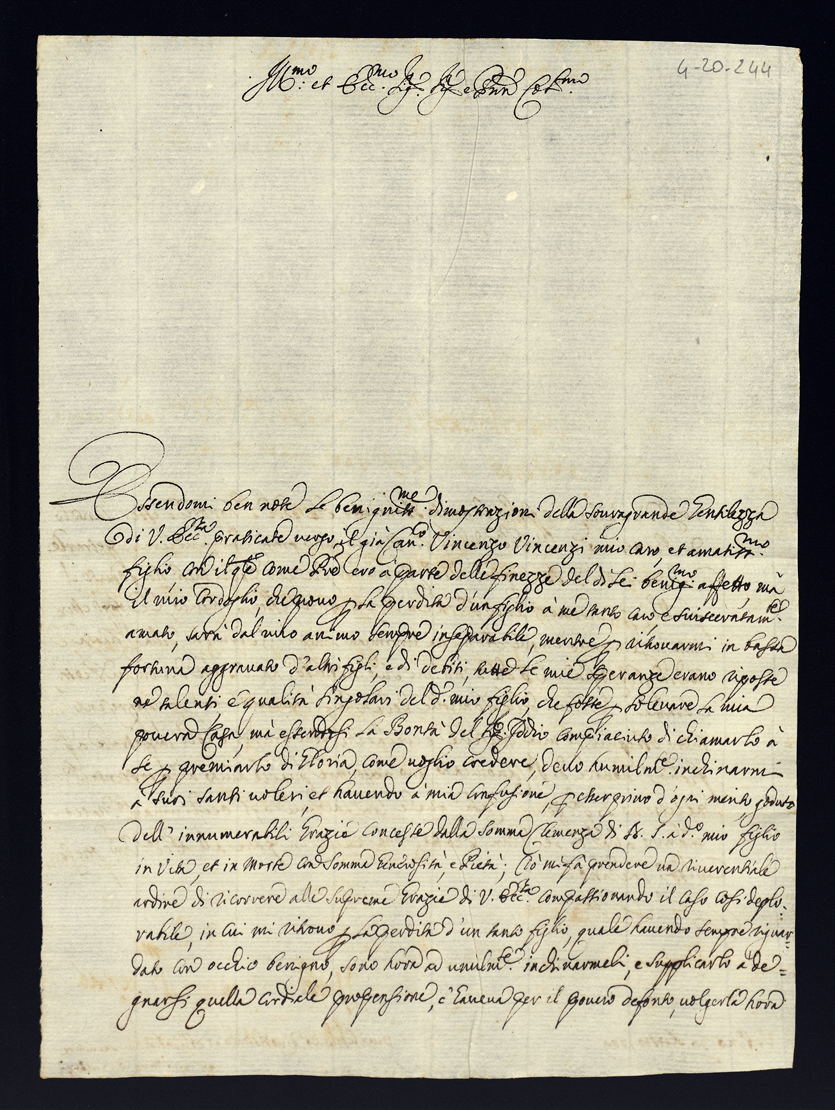 4-20-244
Ill.mo et Ecc.mo Sig.r Sig.r e Pron Col.mo
Essendomi ben note le benignis.me dimostrazioni della souragrande Gentilezza
di V. Ecc.za praticate verso il già Can.co Vincenzo Vincenzi mio caro, et amatiss.mo
figlio con il q.le come Pred ero a parte delle finezze del di Lei benig.mo affetto, mà
il mio Cordoglio, che prouo p la perdita d'un figlio à me tanto caro e suisceratam.te
amato, sarà dal mio animo sempre inseparabile, mentre p ritrouarmi in bassa
fortuna aggrauato d'altri figli, e di debiti, tutte le mie speranze erano riposte
ne talenti e qualità singolari del d.o mio figlio, che fosse p solleuare la mia
pouera Casa, mà essendosi la Bontà del Sig. Iddio compiaciuto di chiamarlo à
se p premiarlo di Gloria, come uoglio credere, deuo humilm.te inchinarmi
a' suoi santi uoleri, et hauendo à mia confusione, p esser priuo d'ogni merito goduto
dell' innumerabili Grazie concesse dalla somma Clemenza di N. S. à d.o mio figlio
in Vita, et in Morte con somma Generosità, e Pietà. Ciò mi fà prendere un riuerentiale
ardire di ricorrere alle supreme Grazie di V. Ecc.za compassionando il caso così deplo-
rabile, in cui mi ritrouo p la perdita d'un tanto figlio, quale hauendo sempre riguar-
dato con occhio benigno, sono hora ad umilm.te inchinarmeli, e supplicarlo a de=
gnarsi quella cordiale propensione, c'haueua per il pouero defonto, uolgerla hora